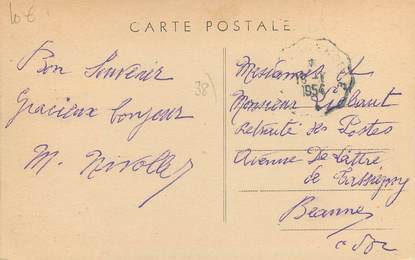 10€
CARTE POSTALE
38)
Bon Souvenir
Gracieux bonjour
M. Nivolle
1954
Mesdames et
Monsieur
Retraité des Postes
Avenue De Lattre
de Tassigny
Beaune
Cdor